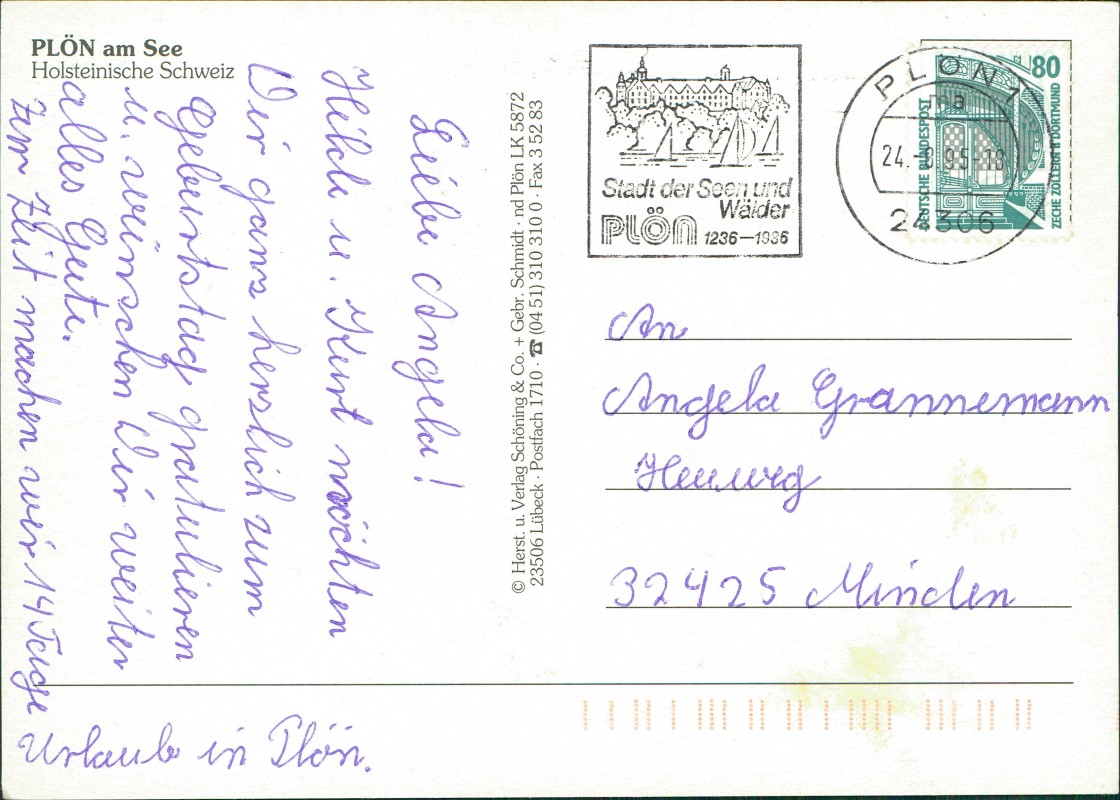 PLÖN am See
Holsteinische Schweiz
Liebe Angela!
Hilch u. Kurt möchten
Dir ganz herslich zum
Gebeurtstag gratulieren
u. wünschen Dir weiter
alles Gute.
Zur Zeit machen wir 14 Tage
Urlaub in Plön.
© Herst. u. Verlag Schöning & Co. + Gebr. Schmidt · nd Plön LK 5872
23506 Lübeck · Postfach 1710 · ☎ (04 51) 310 310 0 · Fax 3 52 83
Stadt der Seen und
Wälder
PLÖN 1236—1986
PLÖN 1
ma
24.-8.95-18
24306
80
DEUTSCHE BUNDESPOST
ZECHE ZOLLERN II DORTMUND
An
Angela Grannemann
32425 Minden